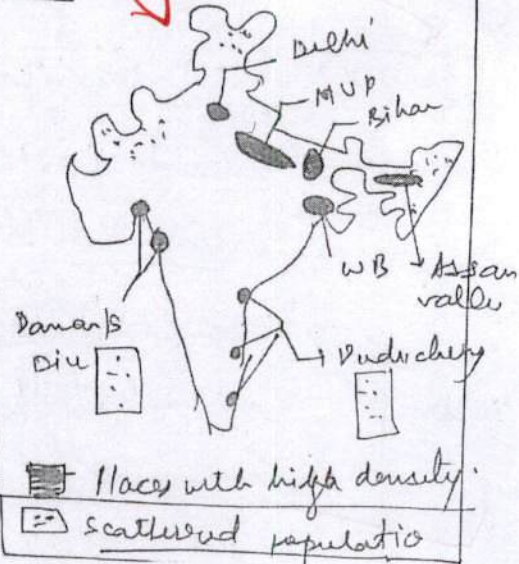 Delhi
MUP
Bihar
WB
Assam
valley
Daman/s
Diu
Puducherry
Places with high density.
scattered populatio